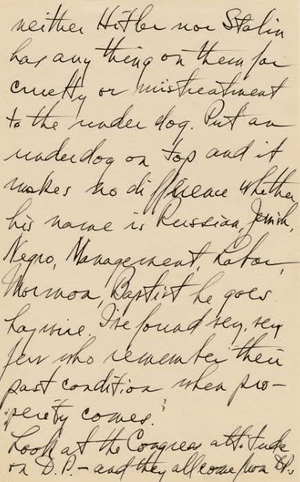 neither Hitler nor Stalin
has anything on them for
cruelty or mistreatment
to the under dog. Put an
underdog on top and it
makes no difference whether
his name is Russian, Jewish,
Negro, Management, Labor,
Mormon, Baptist he goes
haywire. I've found very, very
few who remember their
past condition when pros-
perity comes.
Look at the Congress attitude
on D.P. - and they all come from D.P.s